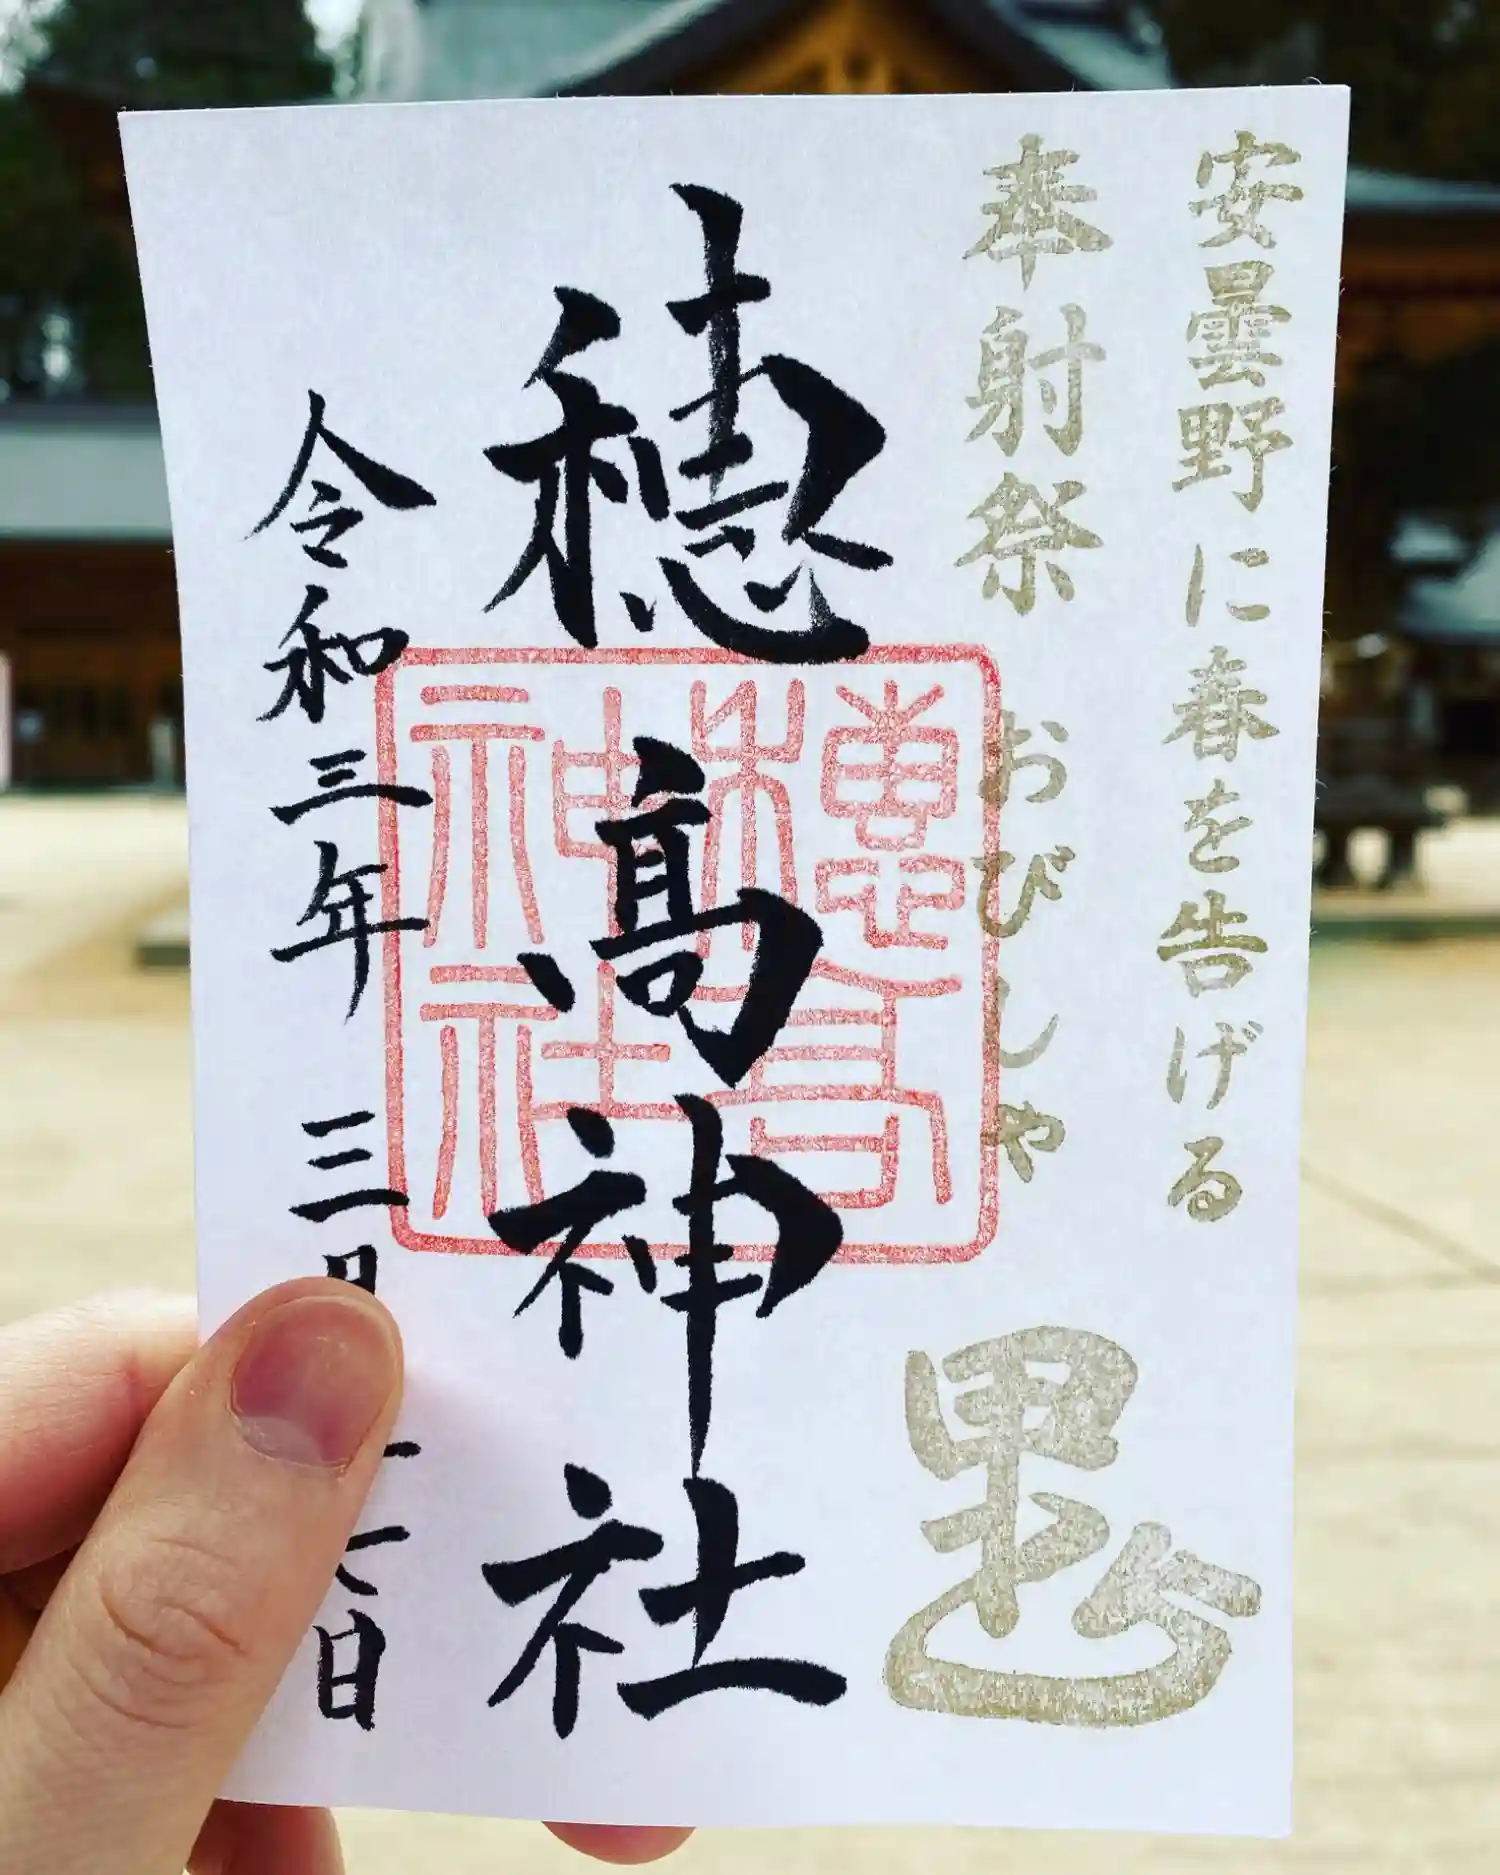 安曇野に春を告げる
奉射祭 おびしゃ
穂髙神社
穂高神社
令和三年 三月 日